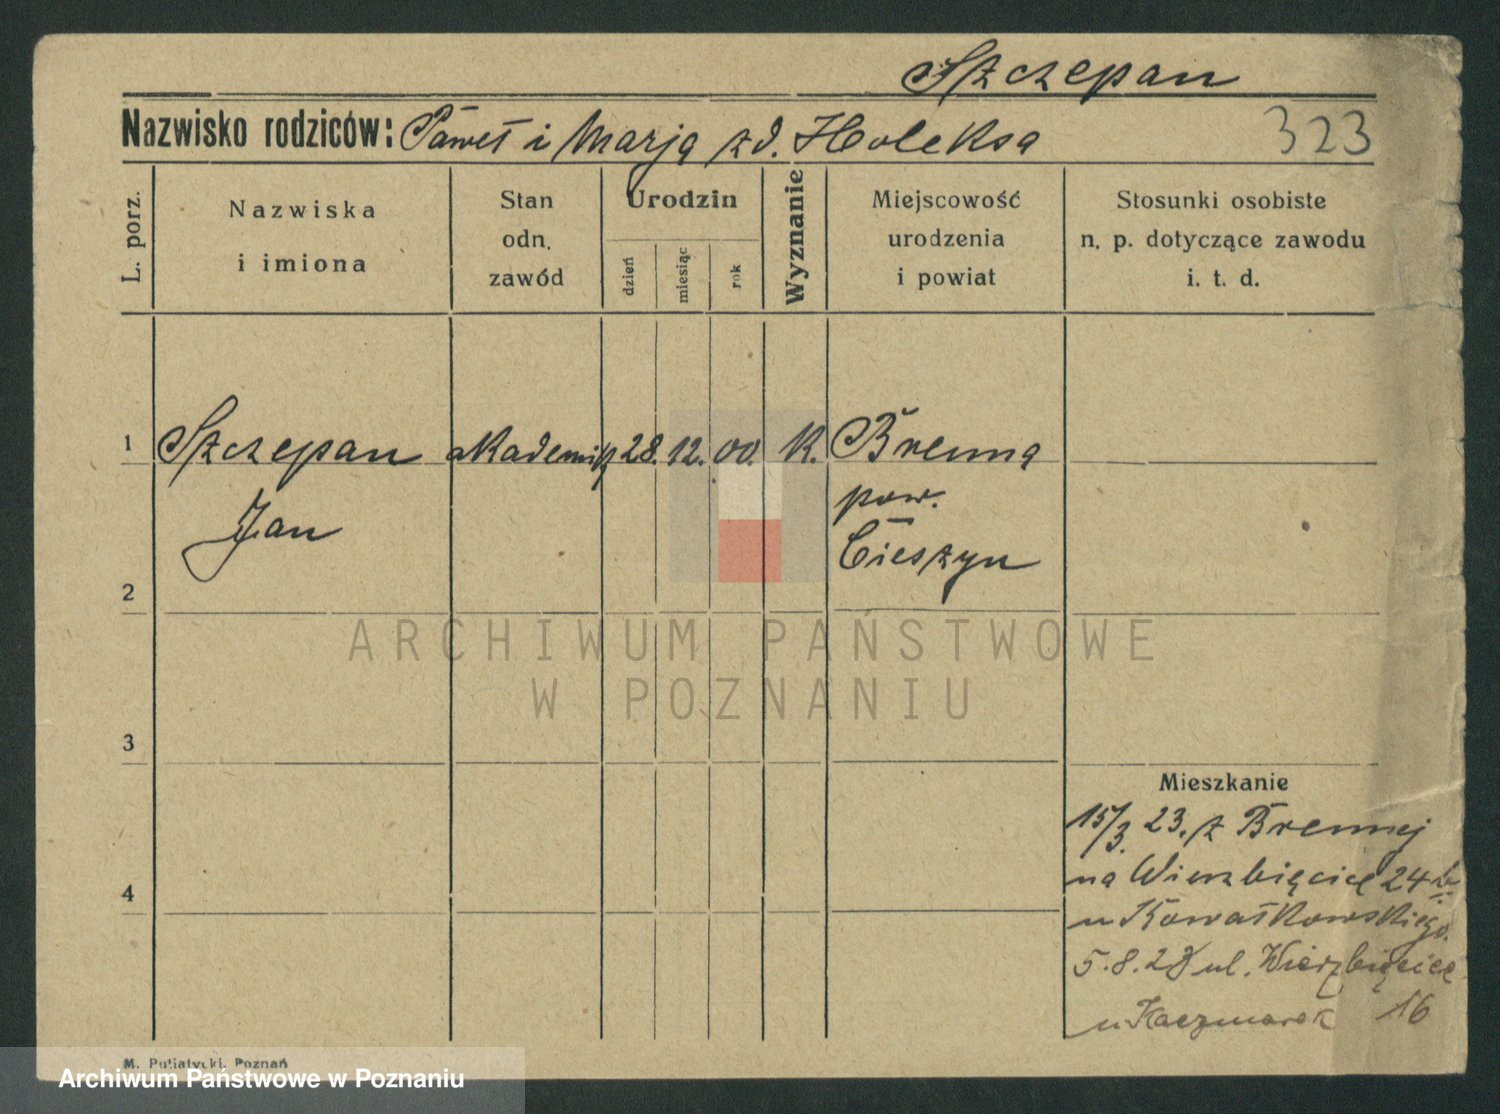 Szczepan
Nazwisko rodziców: Paweł i Marja zd. Holeksa 323
L. porz.
Nazwiska
i imiona
Stan
odn.
zawód
Urodzin
dzień
miesiąc
rok
Wyznanie
Miejscowość
urodzenia
i powiat
Stosunki osobiste
n. p. dotyczące zawodu
i. t. d.
1 Szczepan akademik 28. 12. 00. K. Brenna
Jan pow.
Cieszyn
2
ARCHIWUM PAŃSTWOWE
W POZNANIU
3
Mieszkanie
15/3. 23. z Brennej
4 na Wierzbięcice 24 b.
u Kowałkowskiego.
5.8.28 ul. Wierzbięcice
u Kaczmarek 16
M. Putiatycki, Poznań
Archiwum Państwowe w Poznaniu